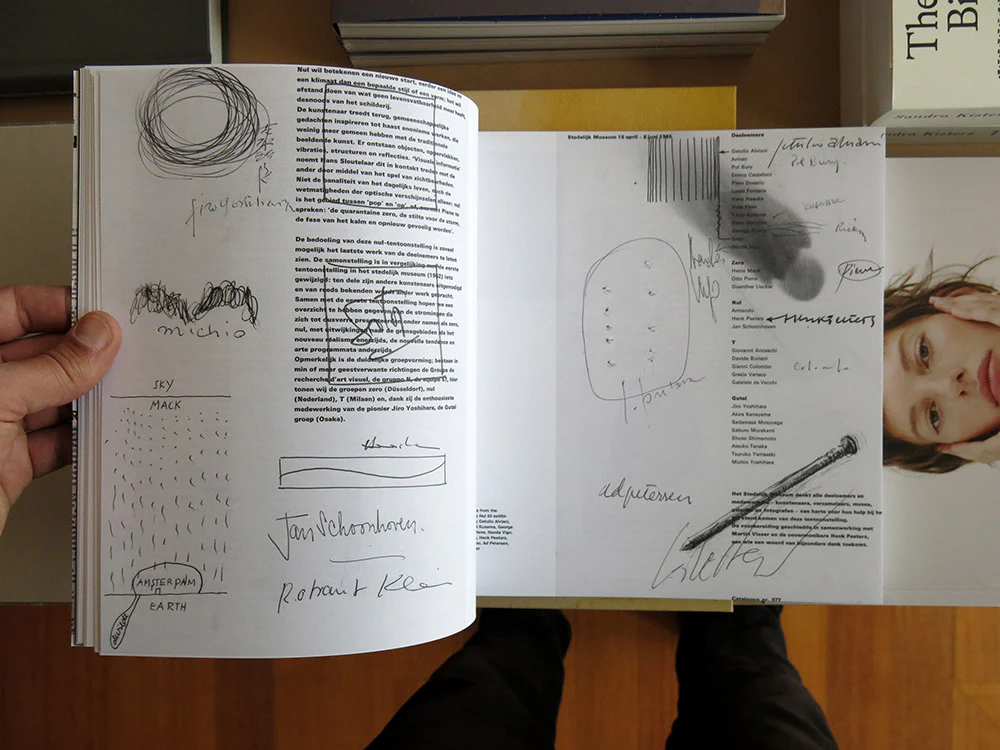 Nul wil betekenen een nieuwe start, eerder een idee en
een klimaat dan een bepaalde stijl of een vorm; het wil
afstand doen van wat geen levensvatbaarheid meer heeft,
desnoods van het schilderij.
De kunstenaar treedt terug, gemeenschappelijke
gedachten inspireren tot haast anonieme werken, die
weinig meer gemeen hebben met de traditionele
beeldende kunst. Er ontstaan objecten, oppervlakken,
vibraties, structuren en reflecties. 'Visuele informatie'
noemt Hans Sleutelaar dit in kontakt treden met de
ander door middel van het spel van zichtbaarheden.
Niet de banaliteit van het dagelijks leven, noch de
wetmatigheden der optische verschijnselen alleen: nul
is het gebied tussen 'pop' en 'op', of, om met Piene te
spreken: 'de quarantaine zero, de stilte voor de storm,
de fase van het kalm en opnieuw gevoelig worden'.
De bedoeling van deze nul-tentoonstelling is zoveel
mogelijk het laatste werk van de deelnemers te laten
zien. De samenstelling is in vergelijking met de eerste
tentoonstelling in het stedelijk museum (1962) iets
gewijzigd: ten dele zijn andere kunstenaars uitgenodigd
en van reeds bekenden werd ander werk gebracht.
Samen met de eerste tentoonstelling hopen we een
overzicht te hebben gegeven van de stromingen die
zich tot dusverre presenteerden onder namen als zero,
nul, met uitwijkingen naar de grensgebieden als het
nouveau réalisme enerzijds, de nouvelle tendance en
arte programmata anderzijds.
Opmerkelijk is de duidelijke groepvorming; bestaan in
min of meer geestverwante richtingen de Groupe de
recherche d'art visuel, de gruppo N, de equipo 57, hier
tonen wij de groepen zero (Düsseldorf), nul
(Nederland), T (Milaan) en, dank zij de enthousiaste
medewerking van de pionier Jiro Yoshihara, de Gutai
groep (Osaka).
jiro yoshihara
michio
SKY
MACK
AMSTERDAM
EARTH
Jan Schoonhoven.
Rotraut Klein
Stedelijk Museum 15 april - 8 juni 1965
Deelnemers
Getulio Alviani
Arman
Pol Bury
Enrico Castellani
Piero Dorazio
Lucio Fontana
Hans Haacke
Yves Klein
Yayoi Kusama
Piero Manzoni
George Rickey
Soto
Nanda Vigo
Zero
Heinz Mack
Otto Piene
Guenther Uecker
Nul
Armando
Henk Peeters
Jan Schoonhoven
T
Giovanni Anceschi
Davide Boriani
Gianni Colombo
Grazia Varisco
Gabriele de Vecchi
Gutai
Jiro Yoshihara
Akira Kanayama
Sadamasa Motonaga
Saburo Murakami
Shozo Shimamoto
Atsuko Tanaka
Tsuruko Yamasaki
Michio Yoshihara
getulio alviani
Pol Bury.
KUSAMA
Rickey
nanda vigo
Piene
HENK PEETERS
Colombo
ad petersen
Het Stedelijk Museum dankt alle deelnemers en
medewerking - kunstenaars, verzamelaars, musea,
galeries en fotografen - van harte voor hun hulp bij het
tot stand komen van deze tentoonstelling.
De voorbereiding geschiedde in samenwerking met
Martin Visser en de onvermoeibare Henk Peeters,
aan wie een woord van bijzondere dank toekomt.
Catalogus nr. 377
The
Bi
Sandra Kisters